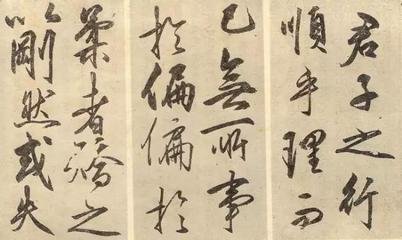 君子之行
順乎理而
已無所事
於偏偏於
柔者矯之
以剛然或失